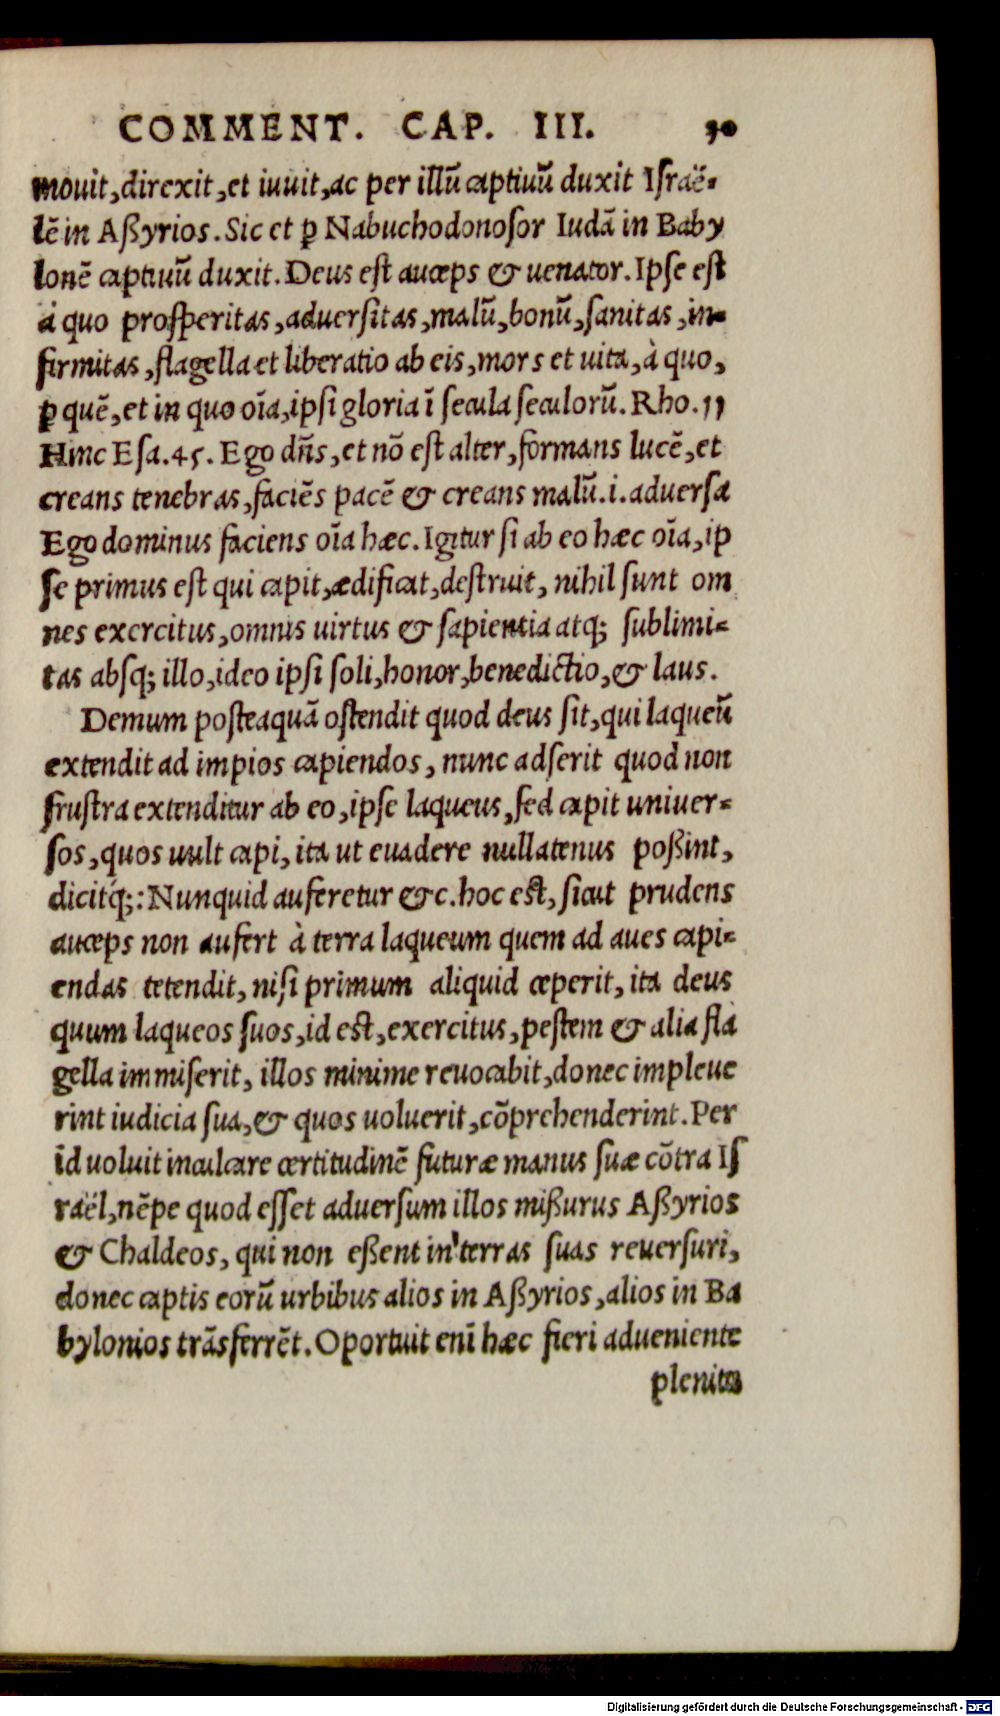 COMMENT. CAP. III. 30
mouit, direxit, et iuuit, ac per illū captiuū duxit Iſraë-
lē in Aßyrios. Sic et ꝑ Nabuchodonoſor Iudā in Baby
lonē captiuū duxit. Deus eſt auceps & uenator. Ipſe eſt
à quo proſperitas, aduerſitas, malū, bonū, ſanitas, in-
firmitas, flagella et liberatio ab eis, mors et uita, à quo,
ꝑ quē, et in quo oīa, ipſi gloria ī ſecula ſeculorū. Rho. 11
Hinc Eſa. 45. Ego dn̄s, et nō eſt alter, formans lucē, et
creans tenebras, faciēs pacē & creans malū .i. aduerſa
Ego dominus faciens oīa hæc. Igitur ſi ab eo hæc oīa, ip
ſe primus eſt qui capit, ædificat, deſtruit, nihil ſunt om
nes exercitus, omnis uirtus & ſapientia atq; ſublimi-
tas abſq; illo, ideo ipſi ſoli, honor, benedictio, & laus.
Demum poſteaquā oſtendit quod deus ſit, qui laqueū
extendit ad impios capiendos, nunc adſerit quod non
fruſtra extenditur ab eo, ipſe laqueus, ſed capit uniuer-
ſos, quos uult capi, ita ut euadere nullatenus poßint,
dicitq́;: Nunquid auferetur &c. hoc eſt, ſicut prudens
auceps non aufert à terra laqueum quem ad aues capi-
endas tetendit, niſi primum aliquid ceperit, ita deus
quum laqueos ſuos, id eſt, exercitus, peſtem & alia fla
gella immiſerit, illos minime reuocabit, donec impleue
rint iudicia ſua, & quos uoluerit, cōprehenderint. Per
id uoluit inculcare certitudinē futuræ manus ſuæ cōtra Iſ
raël, nēpe quod eſſet aduerſum illos mißurus Aßyrios
& Chaldeos, qui non eßent in terras ſuas reuerſuri,
donec captis eorū urbibus alios in Aßyrios, alios in Ba
bylonios trāsferrēt. Oportuit enī hæc fieri adueniente
plenitu
Digitalisierung gefördert durch die Deutsche Forschungsgemeinschaft - DFG